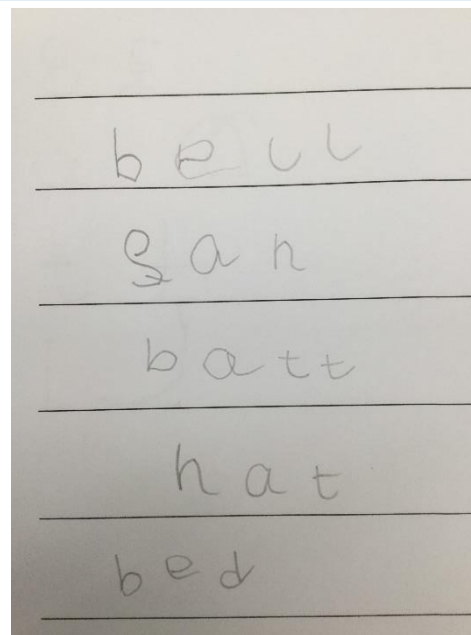 bell
san
batt
hat
bed